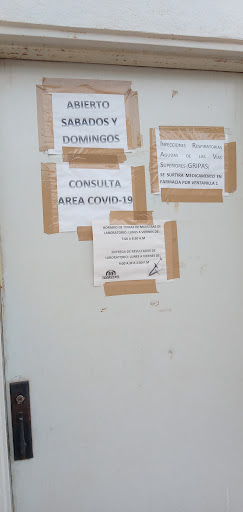 ABIERTO
SABADOS Y
DOMINGOS
INFECCIONES RESPIRATORIAS
AGUDAS DE LAS VIAS
SUPERIORES (GRIPAS)
SE SURTIRA MEDICAMENTO EN
FARMACIA POR VENTANILLA 1
CONSULTA
AREA COVID-19
HORARIO DE TOMAS DE MUESTRAS DE
LABORATORIO: LUNES A VIERNES DE
A.M
ENTREGA DE RESULTADOS DE
LABORATORIO: LUNES A VIERNES DE